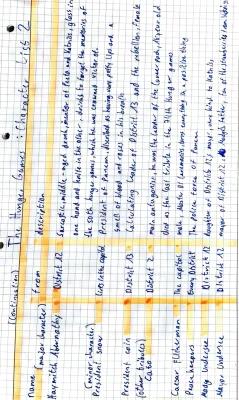 (continuation) The Hunger Games: Character List 2
Name From description
(major character)
Haymitch Abernathy District 12 Sarcastic, middle-aged drunk, mentor of Peeta and Katniss, glass in
one hand and knife in the other, decides to forget the memories of
the 50th hunger games, which he was crowned victor of.
(minor character)
President Snow lives in the capitol President of Panem, described as having very puffy lips and a
smell of blood and roses in his breath
President coin District 13 Calculating leader of District 13 and the rebellion, female
(other tributes)
Cato District 2 main antagonist, he was the leader of the career pack, 18 year old
died as the last tribute in the 74th Hunger games.
Caesar Flickerman The capitol male, Master of ceremonies,
Peacekeepers Every District The police force of Panem
Madge Undersee District 12 daughter of District 12's mayor, was kind to Katniss
Mayor Undersee District 12 mayor of District 12, Madge's father